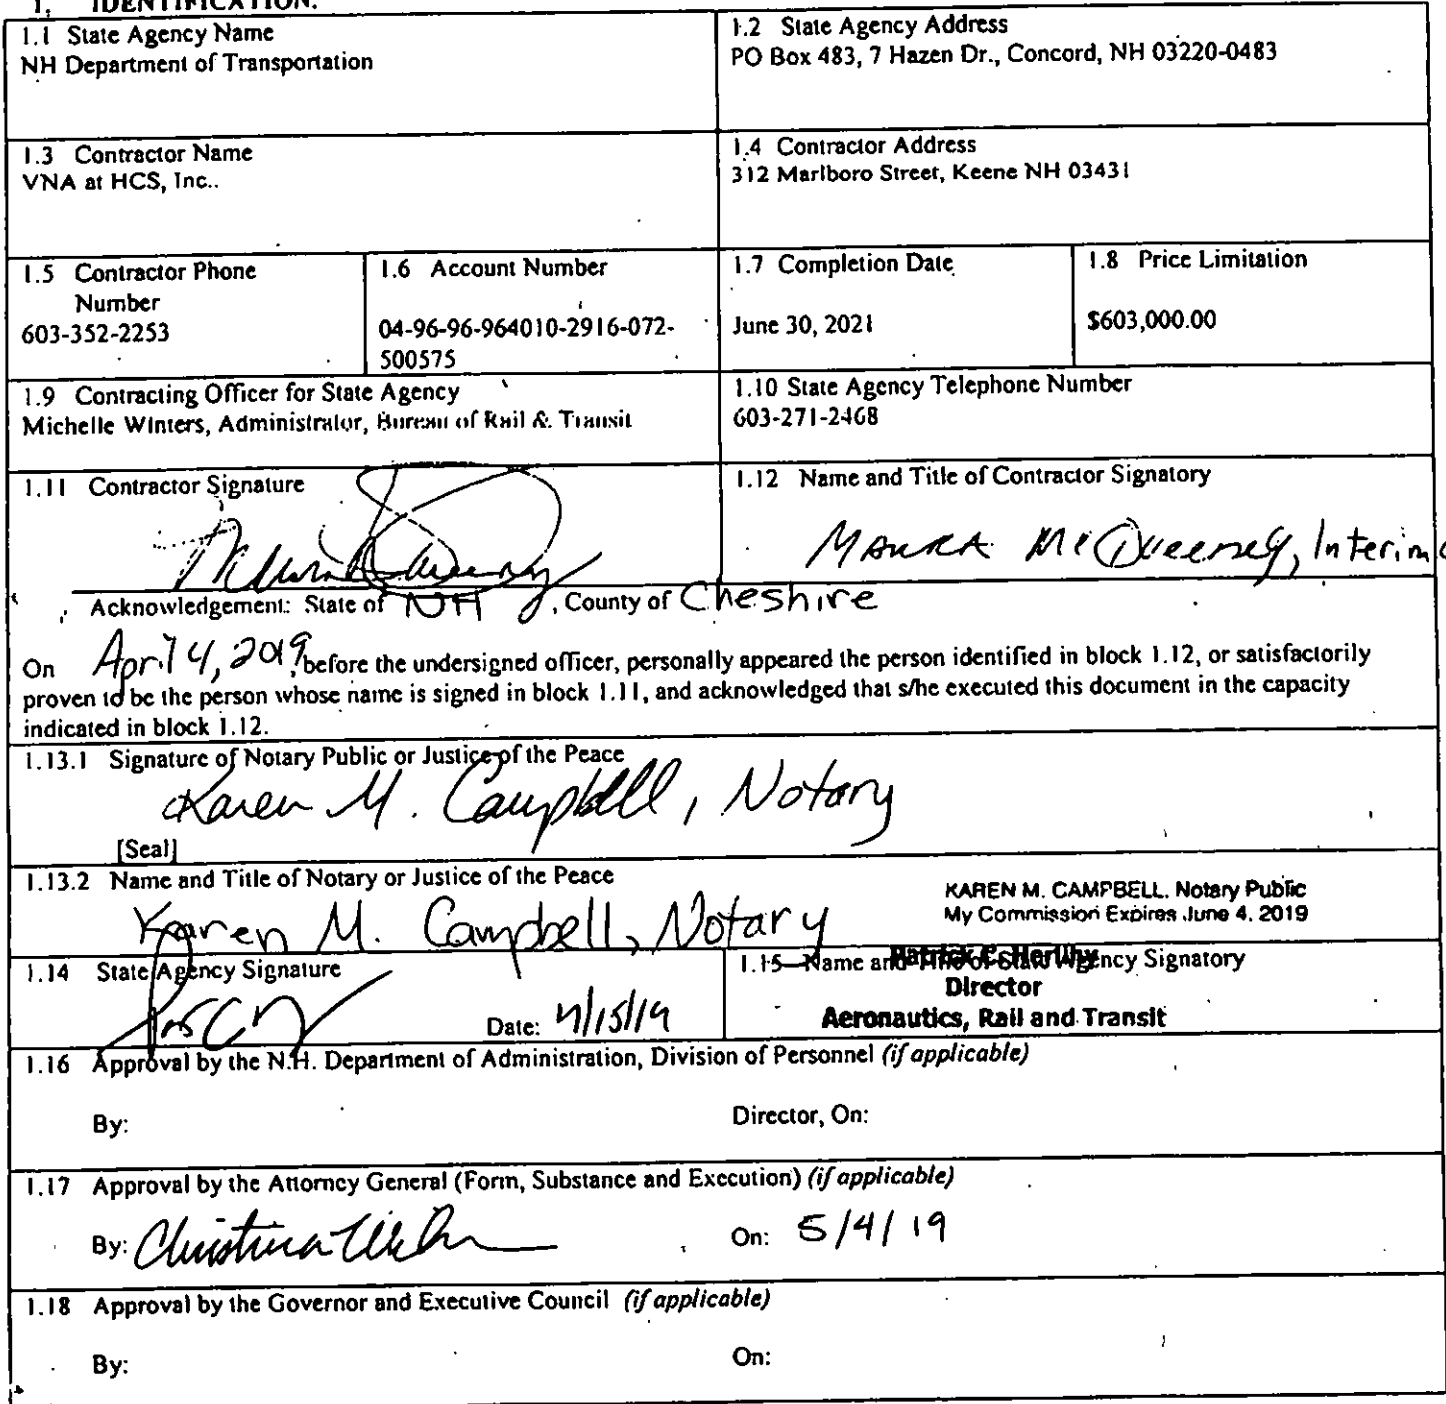 1. IDENTIFICATION.
1.1 State Agency Name
NH Department of Transportation
1.2 State Agency Address
PO Box 483, 7 Hazen Dr., Concord, NH 03220-0483
1.3 Contractor Name
VNA at HCS, Inc..
1.4 Contractor Address
312 Marlboro Street, Keene NH 03431
1.5 Contractor Phone
Number
603-352-2253
1.6 Account Number
04-96-96-964010-2916-072-
500575
1.7 Completion Date
June 30, 2021
1.8 Price Limitation
$603,000.00
1.9 Contracting Officer for State Agency
Michelle Winters, Administrator, Bureau of Rail & Transit
1.10 State Agency Telephone Number
603-271-2468
1.11 Contractor Signature
1.12 Name and Title of Contractor Signatory
Maura McQueeney, Interim
Acknowledgement: State of NH, County of Cheshire
On April 4, 2019, before the undersigned officer, personally appeared the person identified in block 1.12, or satisfactorily
proven to be the person whose name is signed in block 1.11, and acknowledged that s/he executed this document in the capacity
indicated in block 1.12.
1.13.1 Signature of Notary Public or Justice of the Peace
Karen M. Campbell, Notary
[Seal]
1.13.2 Name and Title of Notary or Justice of the Peace
Karen M. Campbell, Notary
KAREN M. CAMPBELL, Notary Public
My Commission Expires June 4, 2019
1.14 State Agency Signature
Date: 4/15/19
1.15 Name and Title of State Agency Signatory
Patrick C. Herlihy
Director
Aeronautics, Rail and Transit
1.16 Approval by the N.H. Department of Administration, Division of Personnel (if applicable)
By:
Director, On:
1.17 Approval by the Attorney General (Form, Substance and Execution) (if applicable)
By: Christina
On: 5/4/19
1.18 Approval by the Governor and Executive Council (if applicable)
By:
On: